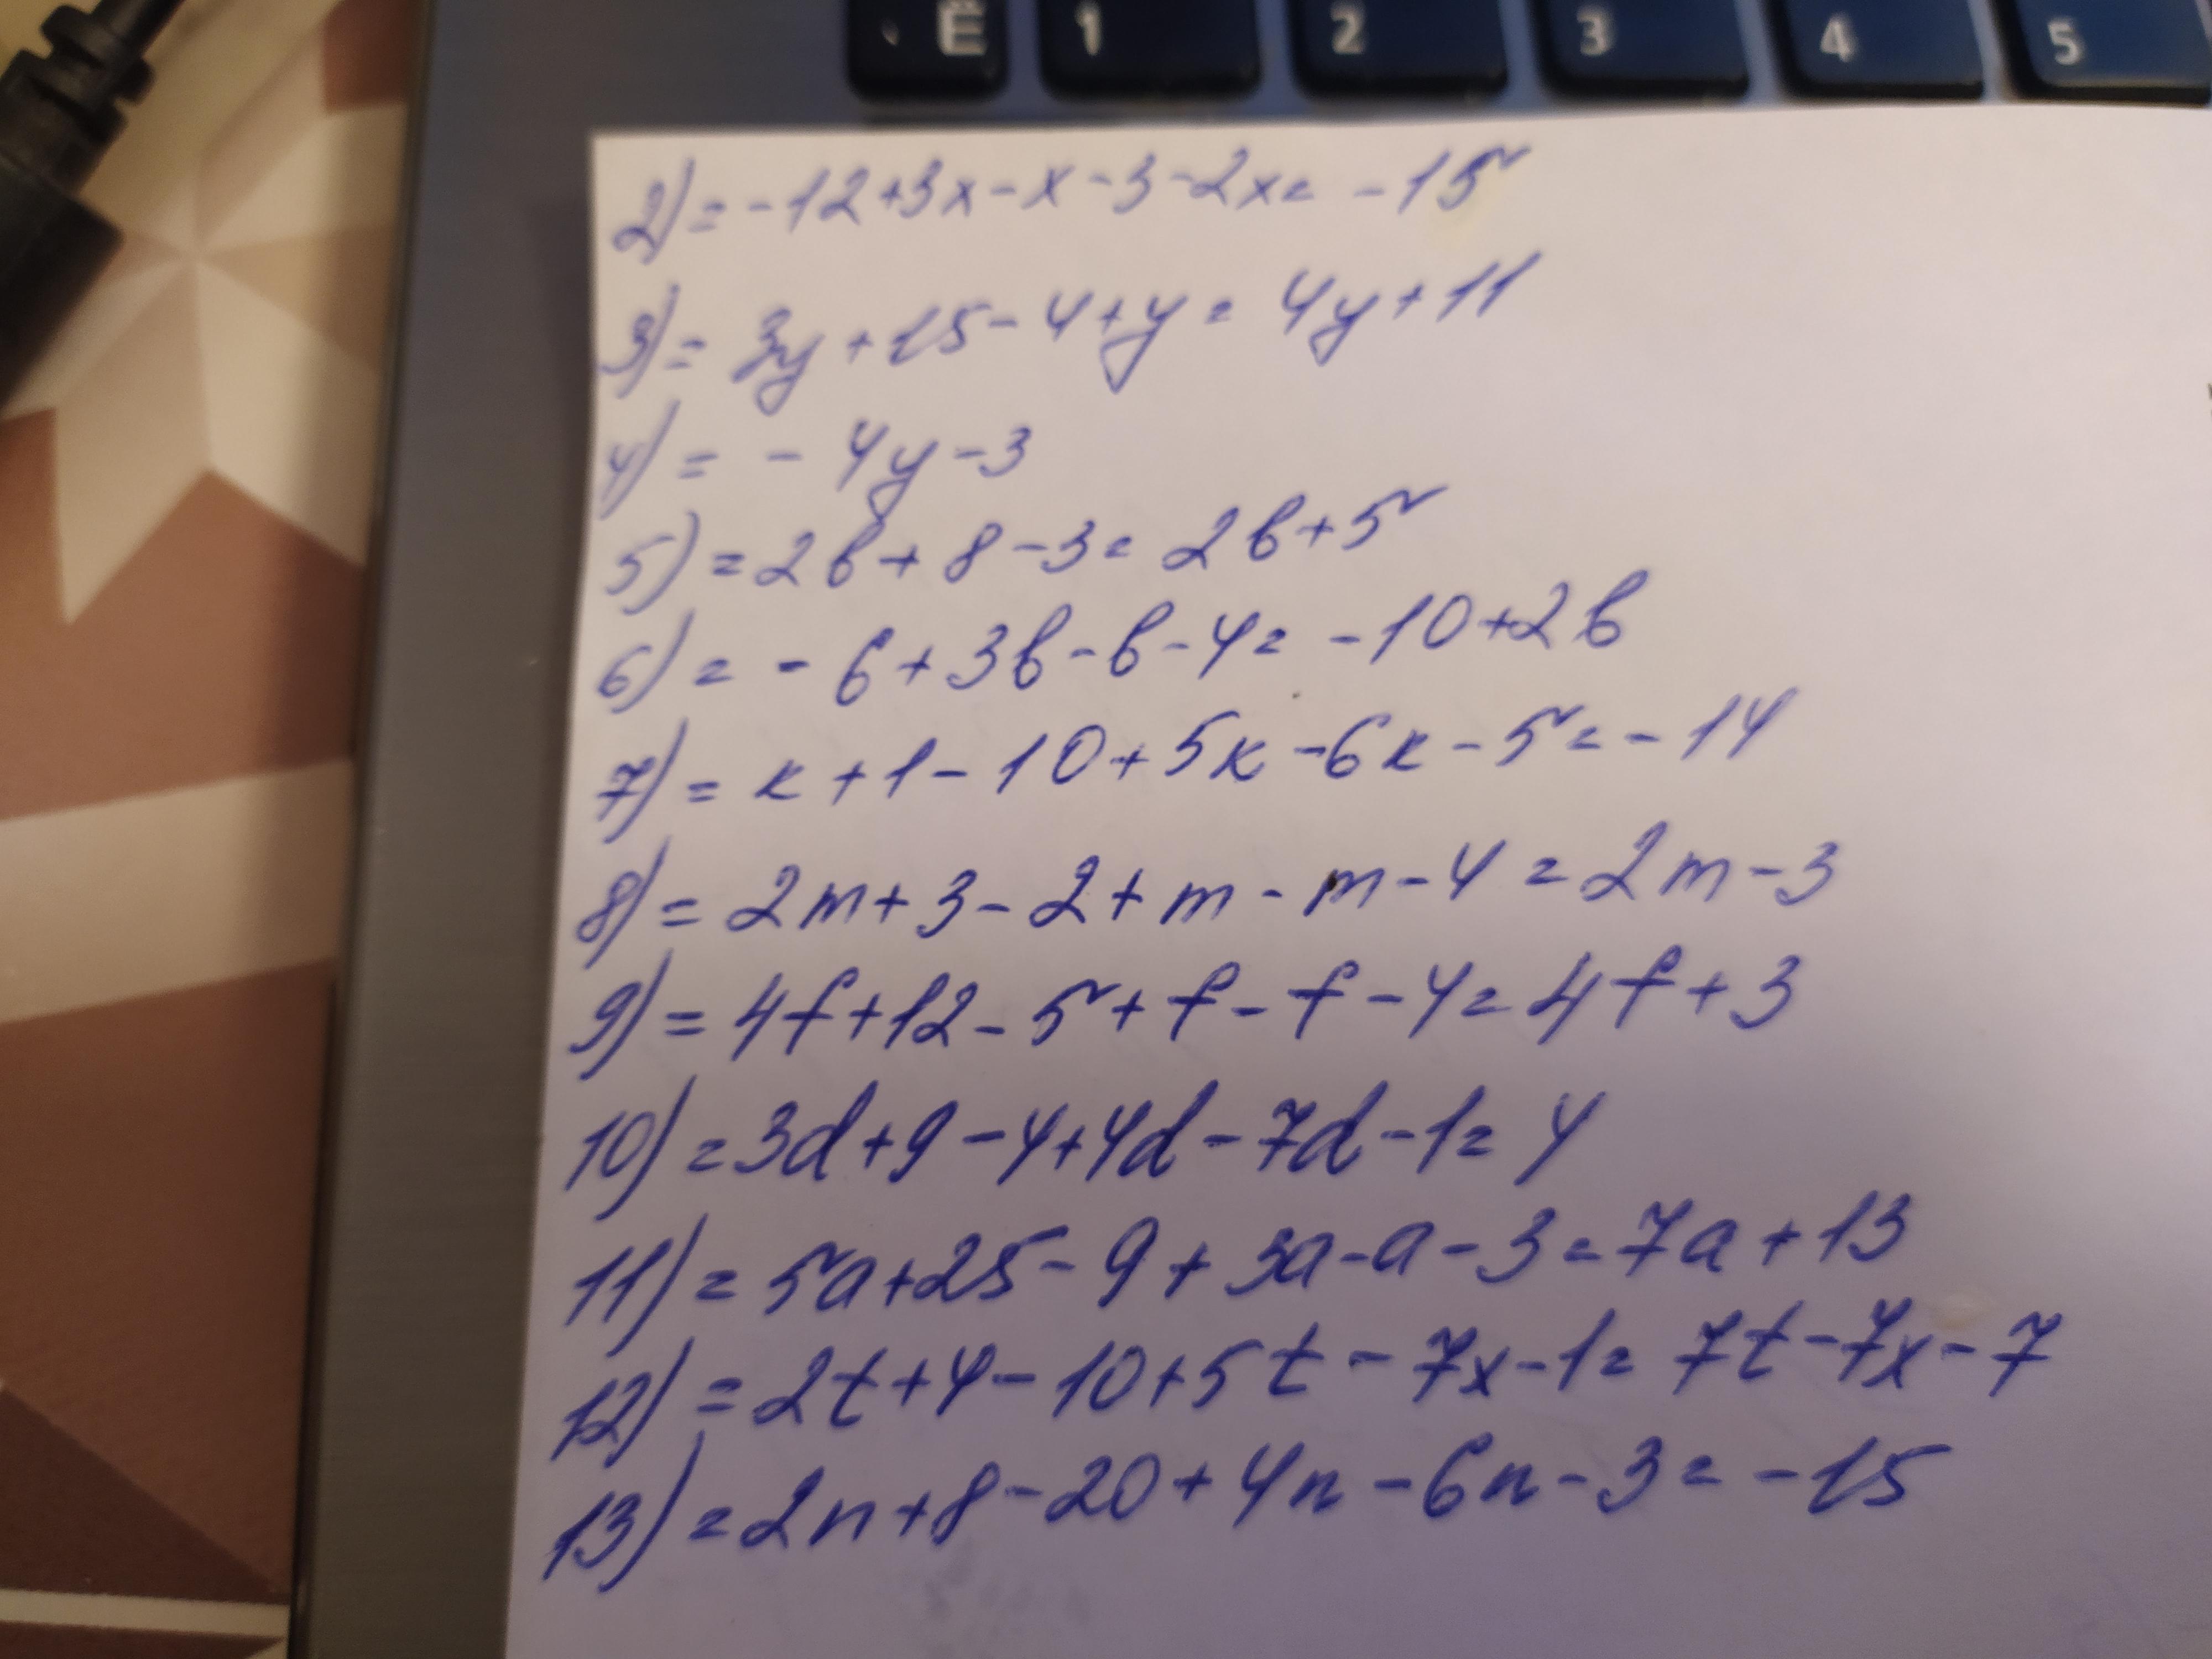 Ё 1 2 3 4 5
2) = -12+3x-x-3-2x= -15
3) = 3y+15-4+y= 4y+11
4) = - 4y-3
5) =2b+8-3= 2b+5
6) = -6+3b-b-4= -10+2b
7) = k+1-10+5k-6k-5=-14
8) = 2m+3-2+m-m-4=2m-3
9) = 4f+12-5+f-f-4=4f+3
10) =3d+9-4+4d-7d-1= 4
11) = 5a+25-9+3a-a-3=7a+13
12) = 2t+4-10+5t-7x-1= 7t-7x-7
13) =2n+8-20+4n-6n-3= -15